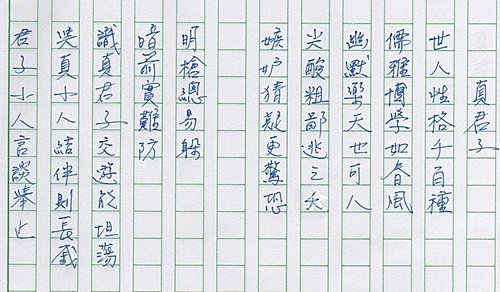 真君子
世人性格千百種
儒雅博學如春風
幽默樂天也可人
尖酸粗鄙逃之夭
嫉妒猜疑更驚恐
明槍總易躲
暗箭實難防
識真君子交遊能坦蕩
與真小人結伴則長戚
君子小人言談舉止